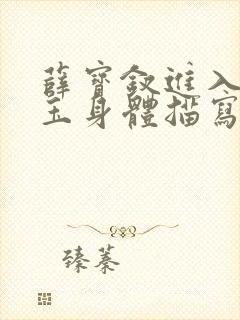 薛寶釵進入
玉身體描寫
臻蓁